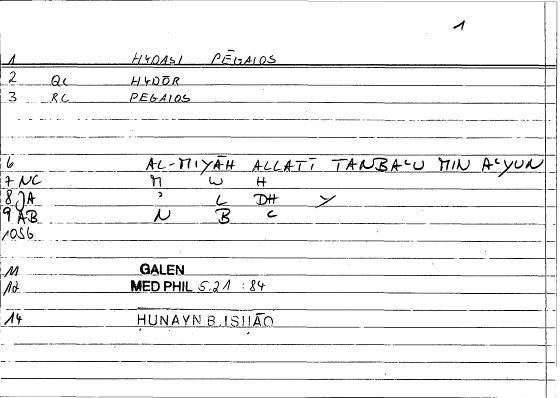 1
1 HYDASI PĒGAIOS
2 QC HYDŌR
3 RC PEGAIOS
6 AL-MIYĀH ALLATĪ TANBAʿU MIN AʿYUN
7 NC M W H
8 JA ʾ L DH Y
9 AB N B ʿ
10 SG
11 GALEN
12 MED PHIL 5.21 :84
14 HUNAYN B.ISHĀQ